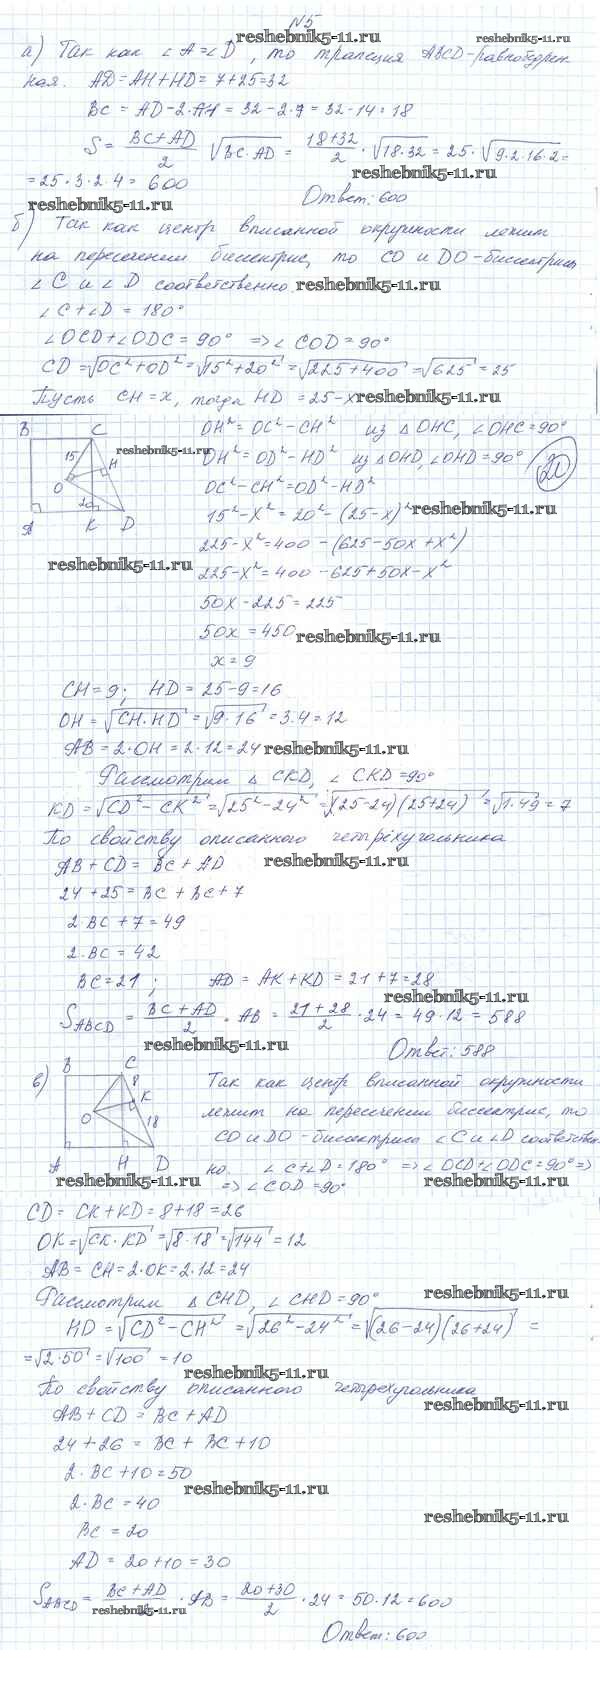 №5
reshebnik5-11.ru
reshebnik5-11.ru
а) Так как ∠A=∠D, то трапеция ABCD-равнобедрен-
ная. AD=AH+HD=7+25=32
BC = AD-2·AH = 32-2·7=32-14=18
S = (BC+AD)/2 √(BC·AD) = (18+32)/2 · √(18·32) = 25·√(9·2·16·2) =
reshebnik5-11.ru
=25·3·2·4= 600 Ответ: 600
reshebnik5-11.ru
б) Так как центр вписанной окружности лежит
на пересечении биссектрис, то CO и DO-биссектрисы
∠C и ∠D соответственно. reshebnik5-11.ru
∠C+∠D = 180°
∠OCD+∠ODC = 90° =>∠COD=90°
CD=√(OC²+OD²)=√(15²+20²)=√(225+400)=√625=25
Пусть CH=x, тогда HD=25-x reshebnik5-11.ru
B C 15 H O 20 A K D
reshebnik5-11.ru
OH²=OC²-CH² из △OHC, ∠OHC=90°
OH²=OD²-HD² из △OHD, ∠OHD=90°
20
OC²-CH²=OD²-HD²
15²-x²=20²-(25-x)² reshebnik5-11.ru
225-x²=400-(625-50x+x²)
reshebnik5-11.ru
225-x²=400-625+50x-x²
50x-225=225
50x=450 reshebnik5-11.ru
x=9
CH=9; HD=25-9=16
OH=√(CH·HD)=√(9·16)=3·4=12
AB=2·OH=2·12=24 reshebnik5-11.ru
Рассмотрим △CKD, ∠CKD=90°
KD=√(CD²-CK²)=√(25²-24²)=√((25-24)(25+24))=√(1·49)=7
По свойству описанного четырёхугольника
AB+CD=BC+AD reshebnik5-11.ru
24+25=BC+BC+7
2·BC+7=49
2·BC=42
BC=21; AD=AK+KD=21+7=28
reshebnik5-11.ru
S ABCD = (BC+AD)/2 · AB = (21+28)/2 · 24 = 49·12 = 588
reshebnik5-11.ru
Ответ: 588
в) B C 8 K O 18 A H D
Так как центр вписанной окружности
лежит на пересечении биссектрис, то
CO и DO-биссектрисы ∠C и ∠D соответствен-
но. ∠C+∠D=180° =>∠OCD+∠ODC=90°=>
reshebnik5-11.ru reshebnik5-11.ru
=>∠COD=90°
CD=CK+KD=8+18=26
OK=√(CK·KD)=√(8·18)=√144=12
AB=CH=2·OK=2·12=24
reshebnik5-11.ru
Рассмотрим △CHD, ∠CHD=90°
HD=√(CD²-CH²)=√(26²-24²)=√((26-24)(26+24))=
=√(2·50)=√100=10
reshebnik5-11.ru
По свойству описанного четырехугольника
reshebnik5-11.ru
AB+CD=BC+AD
24+26=BC+BC+10
2·BC+10=50
reshebnik5-11.ru
2·BC=40
reshebnik5-11.ru
BC=20
AD=20+10=30
S ABCD = (BC+AD)/2 · AB = (20+30)/2 · 24 = 50·12=600
reshebnik5-11.ru
Ответ: 600